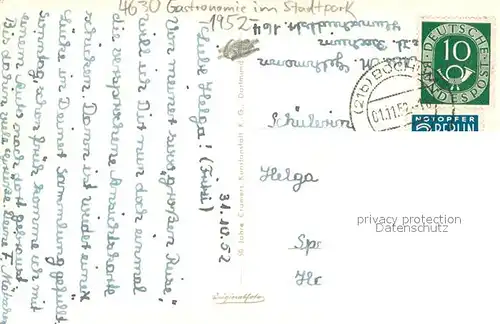 4630 Gastronomie im Stadtpark
-1952-
31.10.52
Liebe Helga! (Fritzi)
Vor meiner "großen Reise"
will ich Dir noch einmal
die versprochene Ansichtskarte
schicken. Dann ist wieder eine
Lücke in Deiner Sammlung gefüllt.
Sonntag schon früh komme ich mit
einem Auto nach dort gebraust.
Bis dahin viele Grüße. Deine F.
50 Jahre Cramers Kunstanstalt K.G., Dortmund
Originalfoto
Bochum
DEUTSCHE
BUNDESPOST
10
(21b) BOCHUM
01.11.52
NOTOPFER
BERLIN
Schülerin
Helga
privacy protection
Datenschutz
Spr
Hr